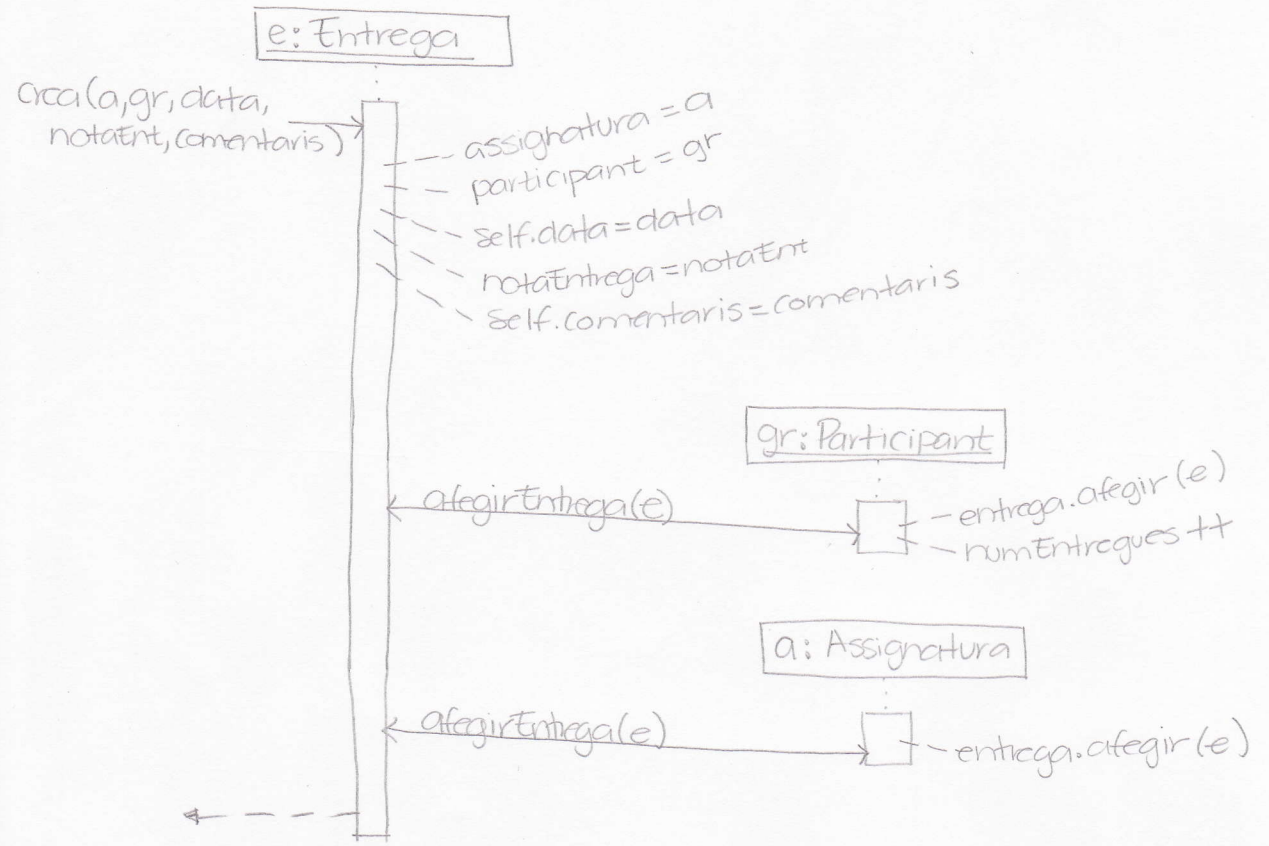 e: Entrega
crea(a,gr,data,
notaEnt,comentaris)
assignatura = a
participant = gr
self.data=data
notaEntrega=notaEnt
self.comentaris=comentaris
gr: Participant
afegirEntrega(e)
entrega.afegir(e)
numEntregues ++
a: Assignatura
afegirEntrega(e)
entrega.afegir(e)